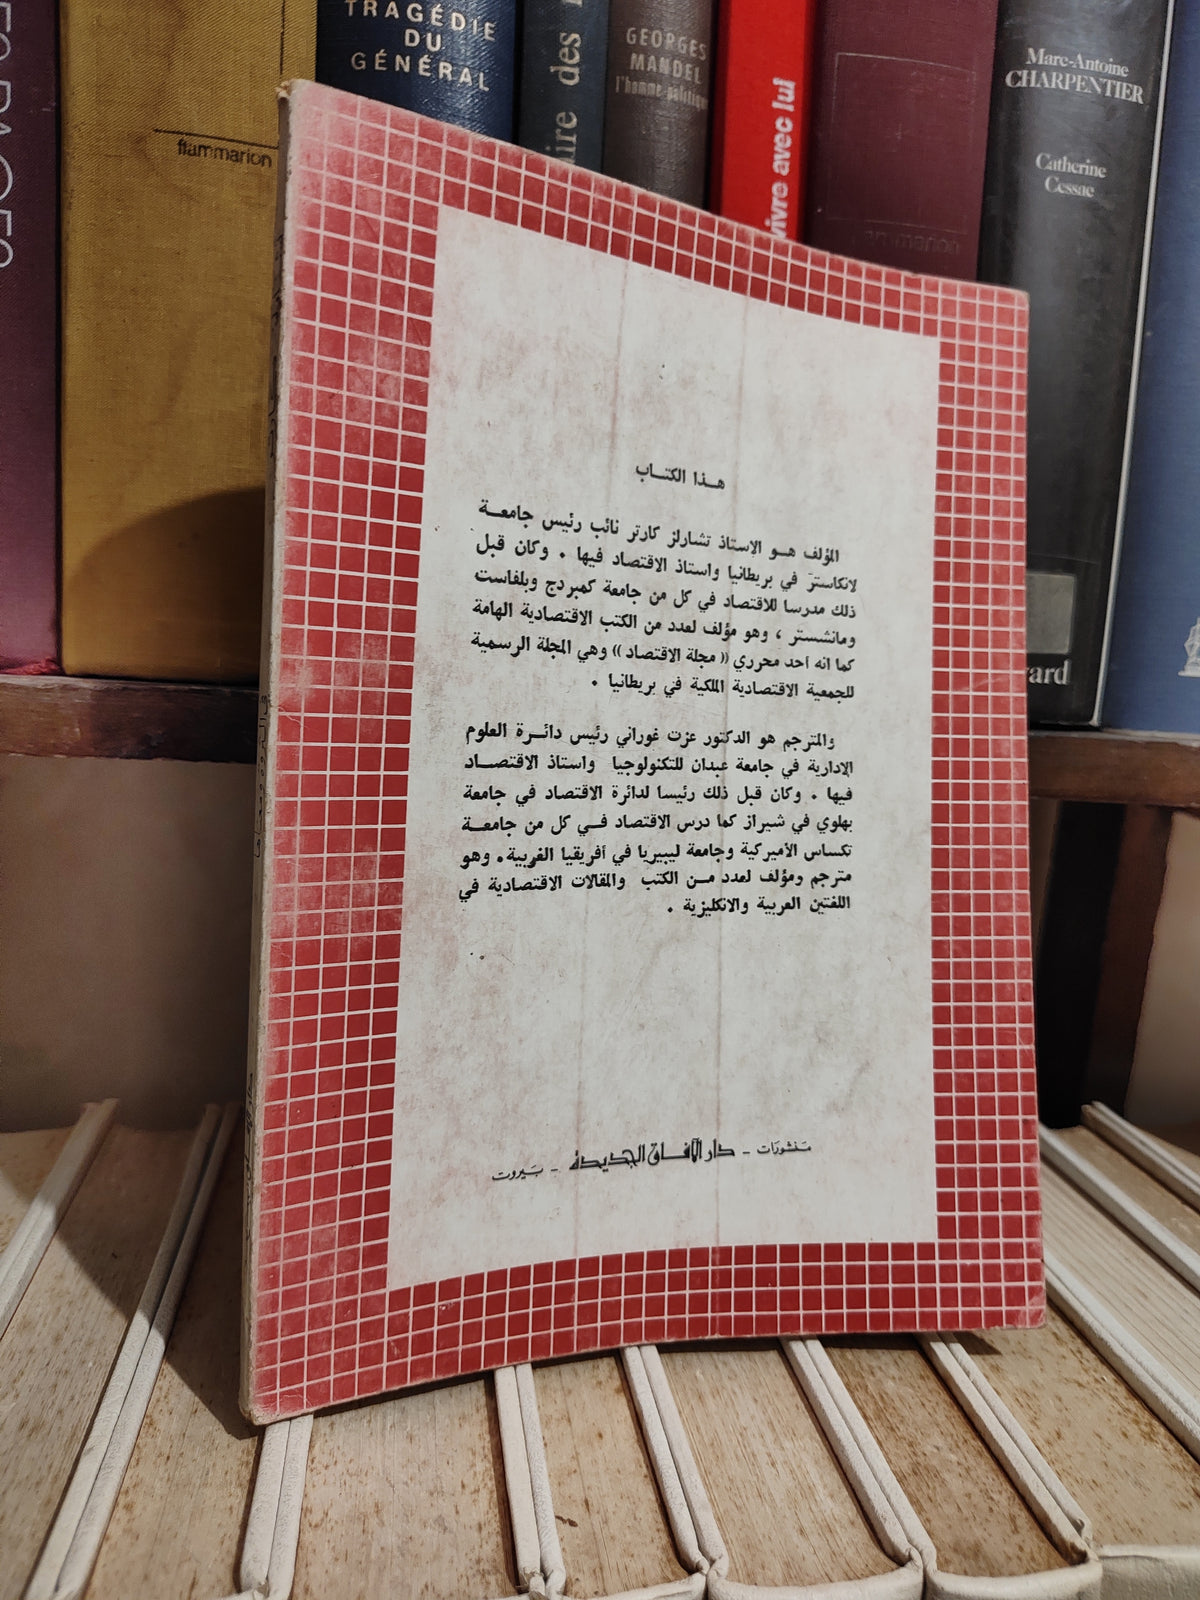 TRAGÉDIE
DU
GÉNÉRAL
flammarion
des
GEORGES
MANDEL
l'homme politique
vivre avec lui
flammarion
Marc-Antoine
CHARPENTIER
Catherine
Cessac
هـذا الكتـاب
المؤلف هـو الاستاذ تشارلز كارتر نائب رئيس جامعـة
لانكاستر في بريطانيا واستاذ الاقتصاد فيها . وكان قبل
ذلك مدرسا للاقتصاد في كل من جامعة كمبردج وبلفاست
ومانشستر ، وهو مؤلف لعدد من الكتب الاقتصادية الهامة
كما انه احد محرري « مجلة الاقتصاد » وهي المجلة الرسمية
للجمعية الاقتصادية الملكية في بريطانيا .
والمترجم هو الدكتور عزت غوراني رئيس دائـرة العلوم
الادارية في جامعة عبدان للتكنولوجيا واستاذ الاقتصـاد
فيها . وكان قبل ذلك رئيسا لدائرة الاقتصاد في جامعة
بهلوي في شيراز كما درس الاقتصاد فـي كل من جامعـة
تكساس الأميركية وجامعة ليبيريا في أفريقيا الغربية. وهو
مترجم ومؤلف لعدد مـن الكتب والمقالات الاقتصادية في
اللغتين العربية والانكليزية .
منشورات - دار الآفاق الجديدة - بيروت